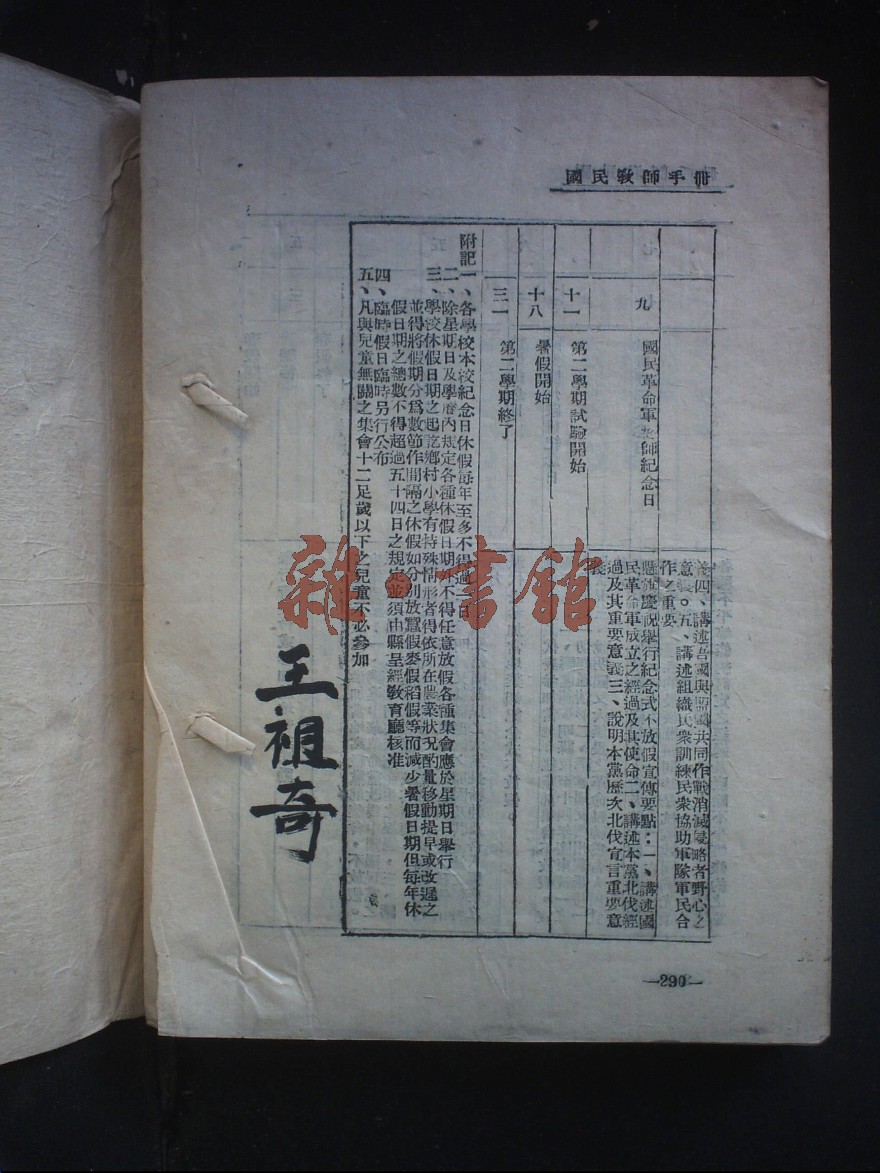 國民教師手冊
義四、講述吾國與盟國共同作戰消滅侵略者野心之
意義。五、講述組織民衆訓練民衆協助軍隊軍民合
作之重要
九
國民革命軍誓師紀念日
懸旗慶祝舉行紀念式不放假宣傳要點：一、講述國
民革命軍成立之經過及其使命二、講述本黨北伐經
過及其重要意義三、說明本黨歷次北伐宣言重要意
義
十一
第二學期試驗開始
十八
暑假開始
三一
第二學期終了
附記一、各學校本校紀念日休假每年至多不得過一日
二、除星期日及學曆內規定各種休假日期外不得任意放假各種集會應於星期日舉行
三、學校休假日期之起訖鄉村小學有特殊情形者得依所在農業狀況酌量移動提早或改遲之
並得將假期分爲數節作間隔之休假如分別放蠶假麥假稻假等而減少暑假日期但每年休
假日期之總數不得超過五十四日之規定並須由縣呈經教育廳核准
四、臨時假日臨時另行公布
五、凡與兒童無關之集會十二足歲以下之兒童不必參加
王祖奇
—290—
雜·書館